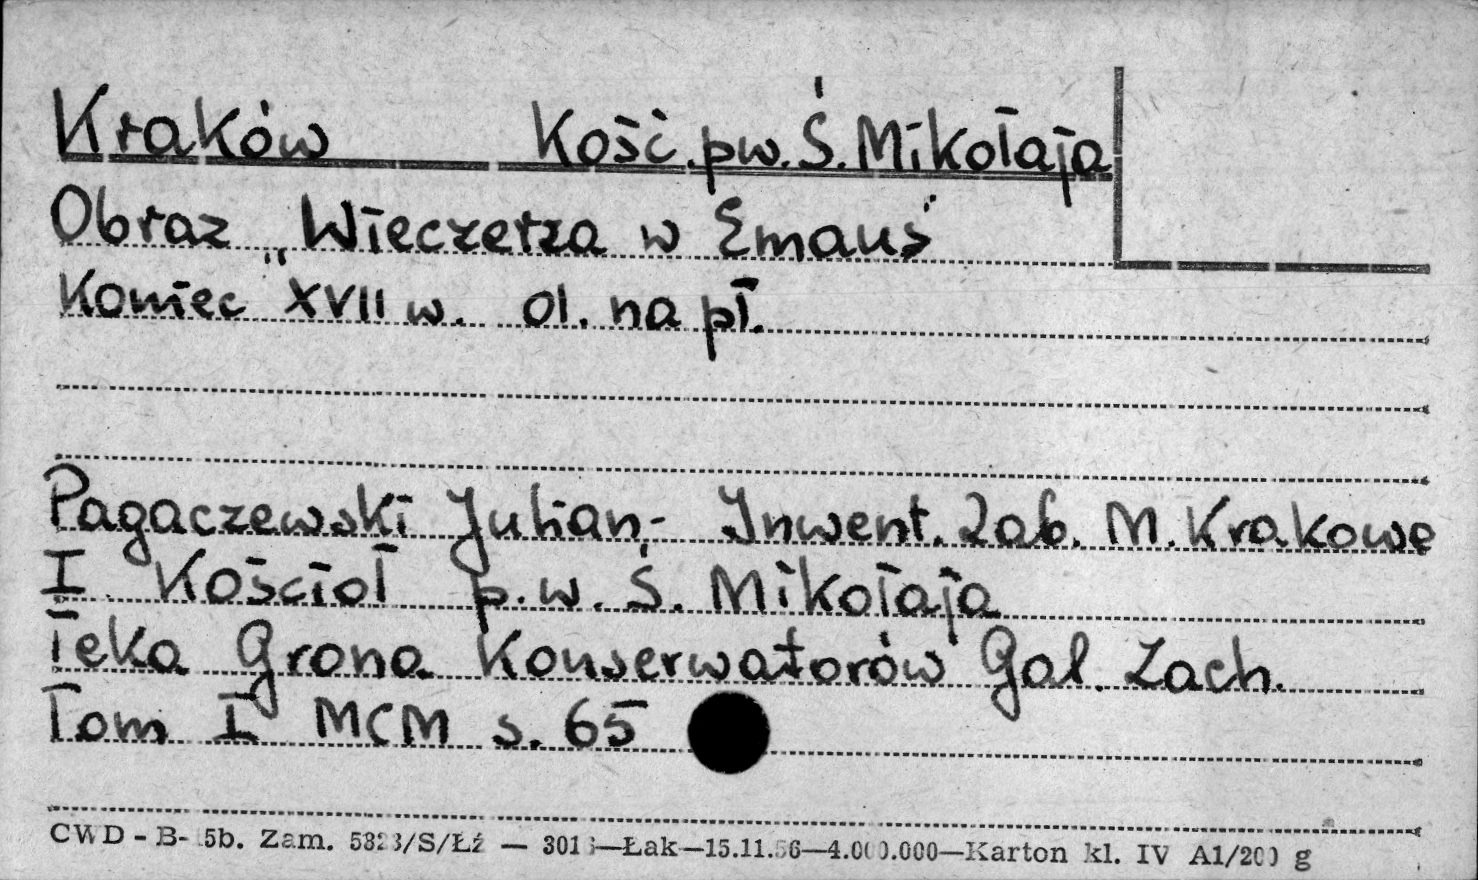 Kraków Kość. pw. Ś. Mikołaja
Obraz „Wieczerza w Emaus"
Koniec XVII w. ol. na pł.
Pagaczewski Julian - Inwent. Zab. M. Krakowa
I. Kościoł p.w. Ś. Mikołaja
Teka Grona Konserwatorów Gal. Zach.
Tom I MCM s. 65
CWD - B- 5b. Zam. 5323/S/Łź — 3016—Łak—15.11.56—4.000.000—Karton kl. IV A1/200 g